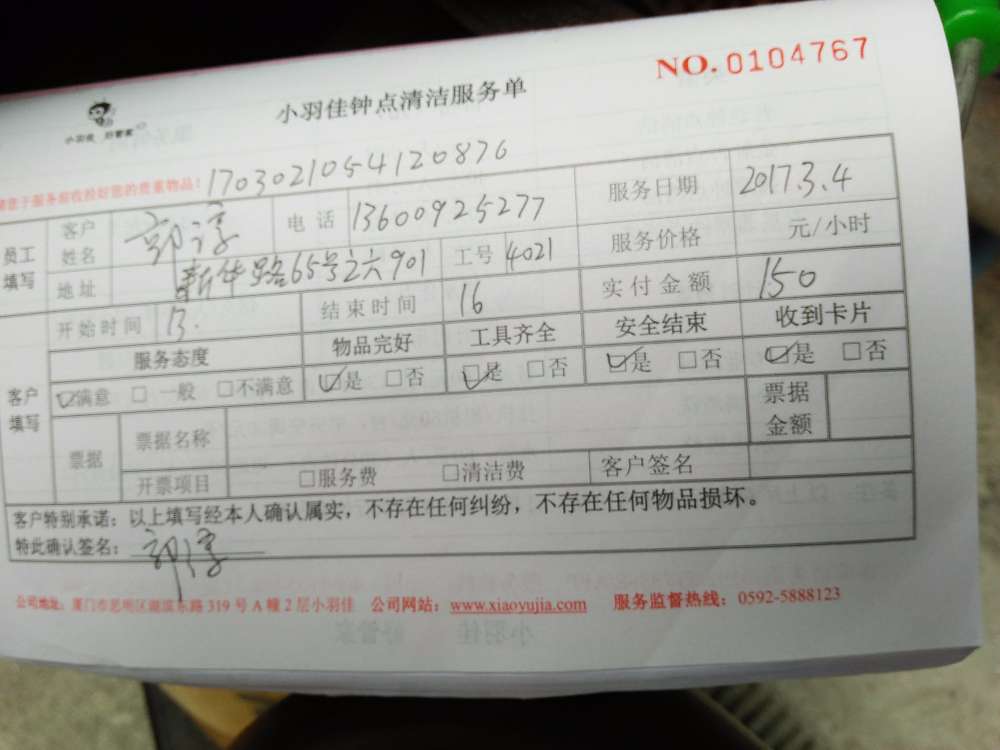 NO. 0104767
小羽佳钟点清洁服务单
小羽佳 好管家
请您于服务前收捡好您的贵重物品! 1703021054120876
员工填写 客户姓名 郭淳 电话 13600925277 服务日期 2017.3.4
地址 新华路65号之六901 工号 4021 服务价格 元/小时
开始时间 13. 结束时间 16 实付金额 150
客户填写 服务态度 物品完好 工具齐全 安全结束 收到卡片
☑满意 □一般 □不满意 ☑是 □否 ☑是 □否 ☑是 □否 ☑是 □否
票据 票据名称 票据金额
开票项目 □服务费 □清洁费 客户签名
客户特别承诺:以上填写经本人确认属实,不存在任何纠纷,不存在任何物品损坏。
特此确认签名: 郭淳
公司地址:厦门市思明区湖滨东路319号A幢2层小羽佳 公司网站:www.xiaoyujia.com 服务监督热线:0592-5888123